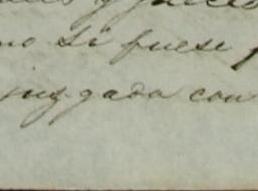 y
no si fuese
juzgada con